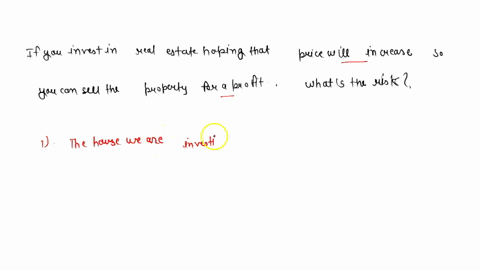 If you invest in real estate hoping that price will increase so
you can sell the property for a profit. what's the risk?.
1). The house we are investi